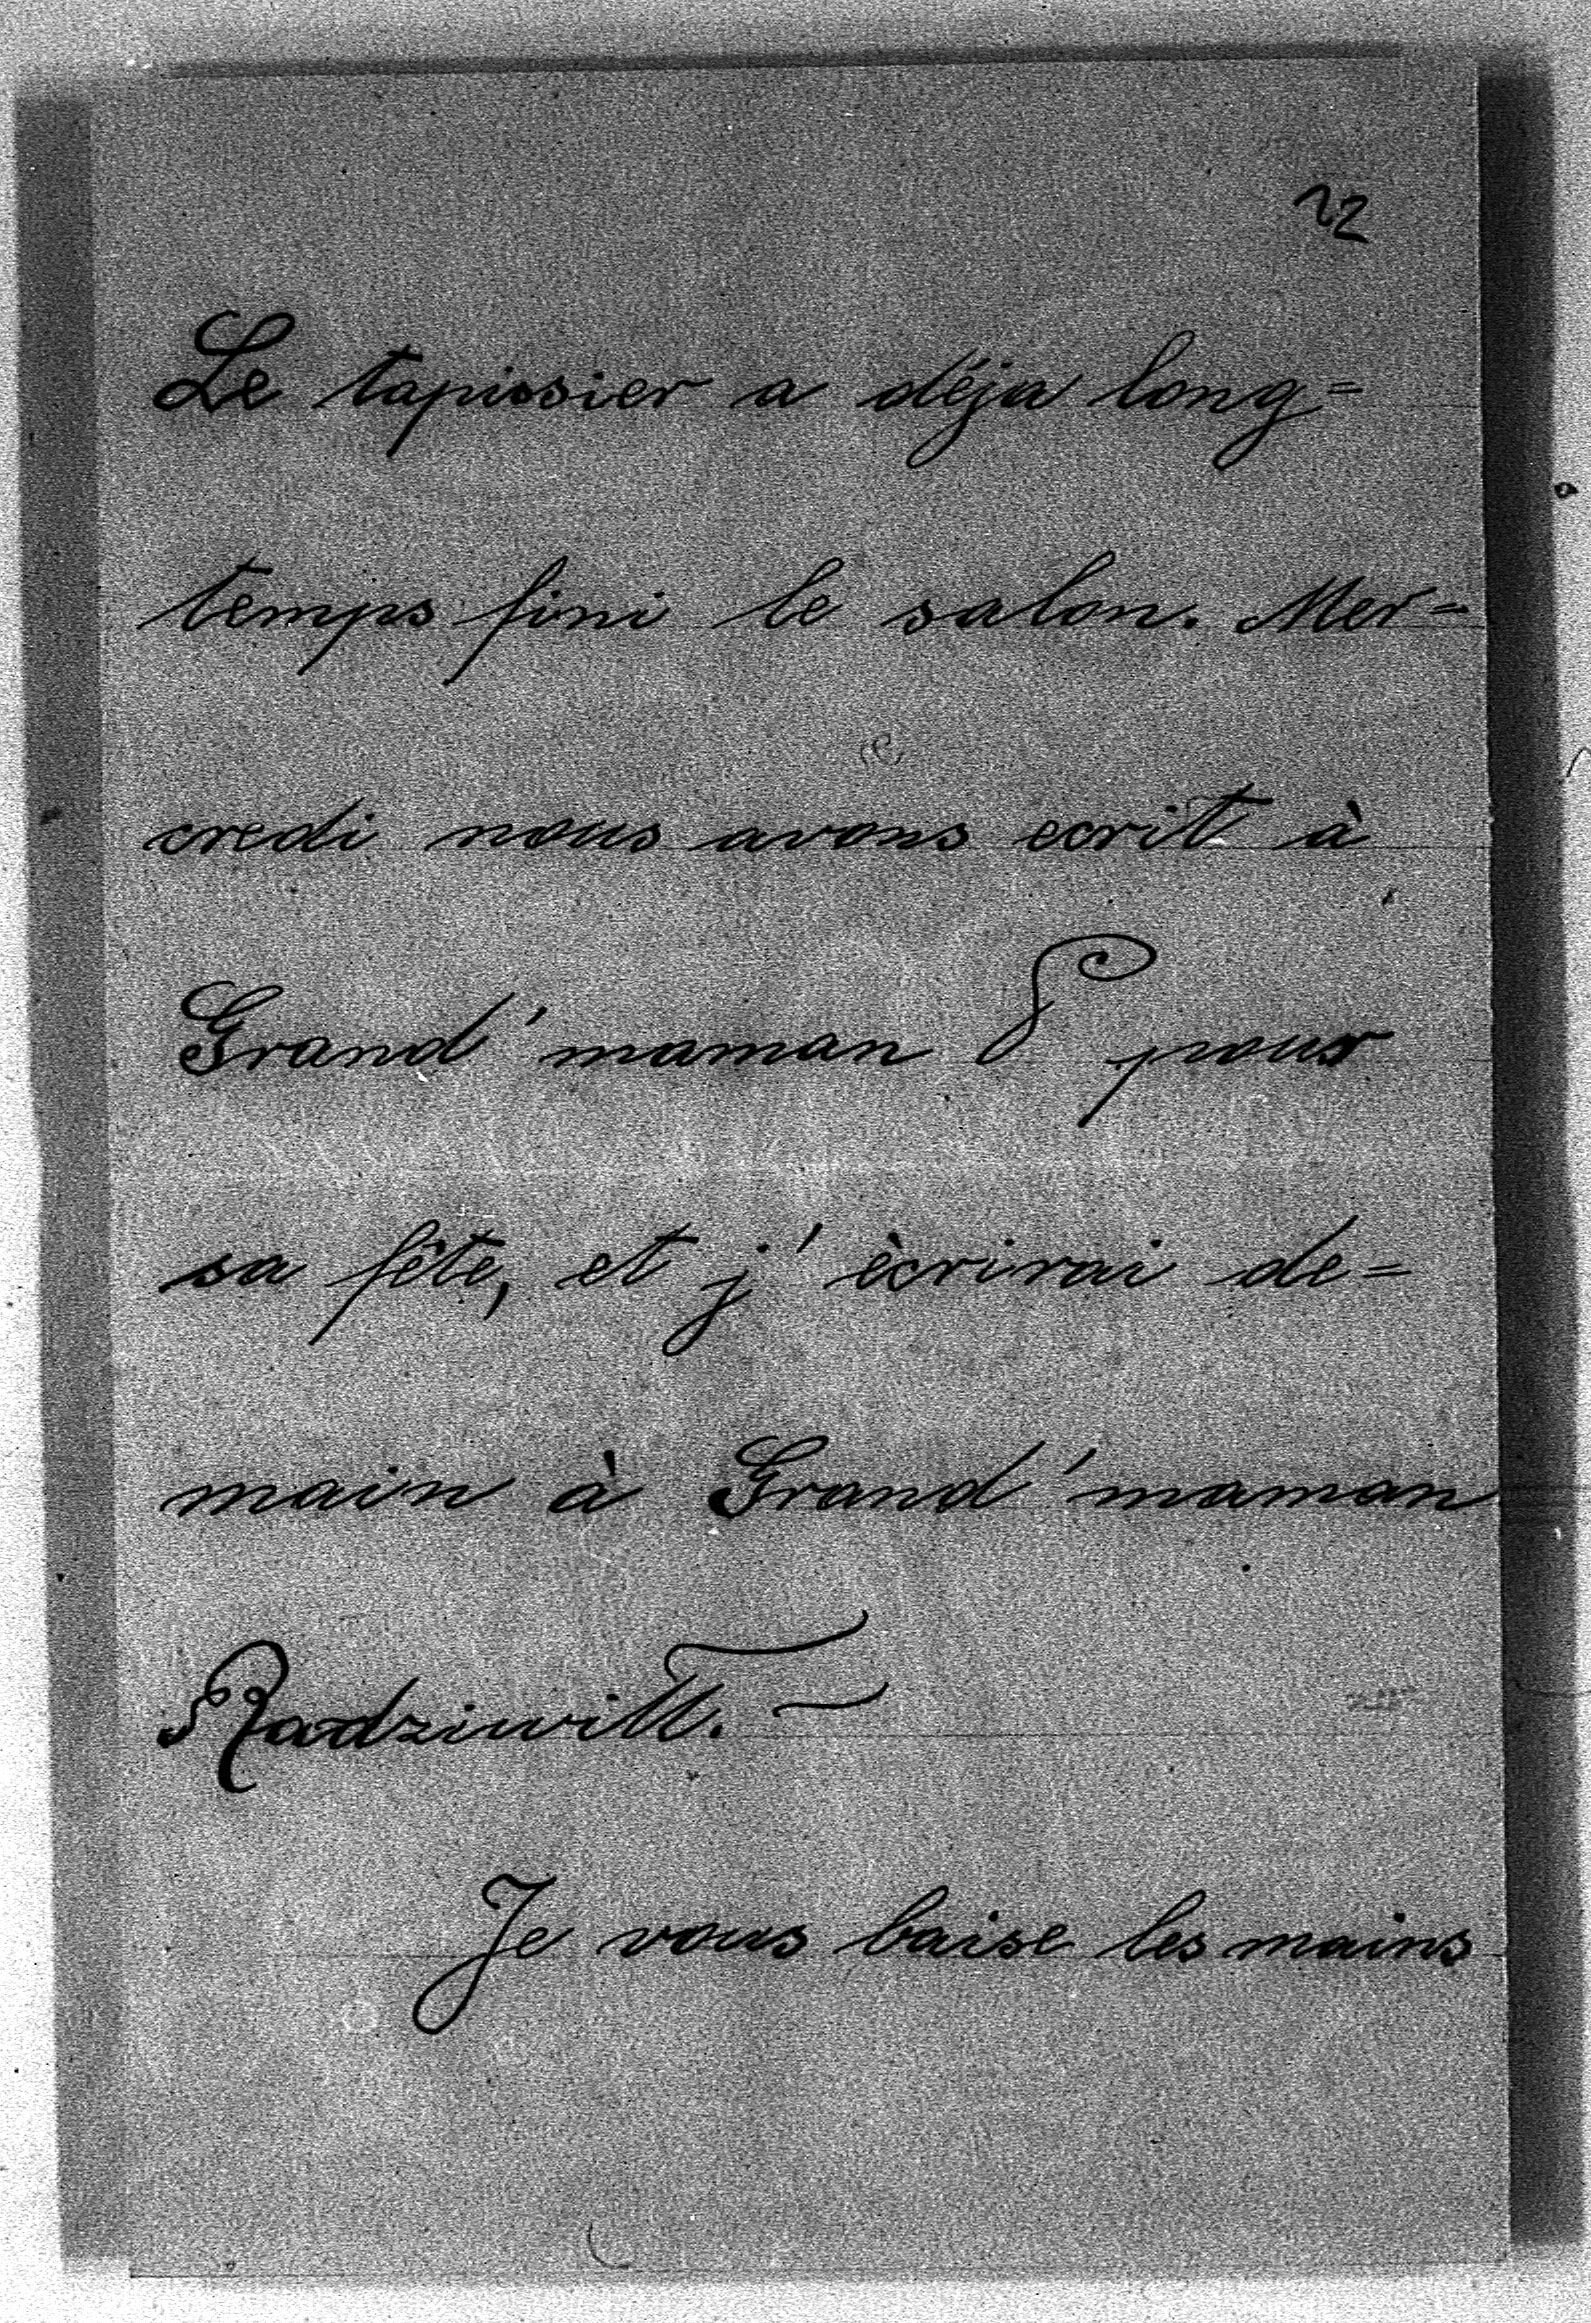 22
Le tapissier a déja long=
temps fini le salon. Mer=
credi nous avons ecrit à
Grand' maman P pour
sa fête, et j' ècrirai de=
main à Grand' maman
Radziwill. —
Je vous baise les mains